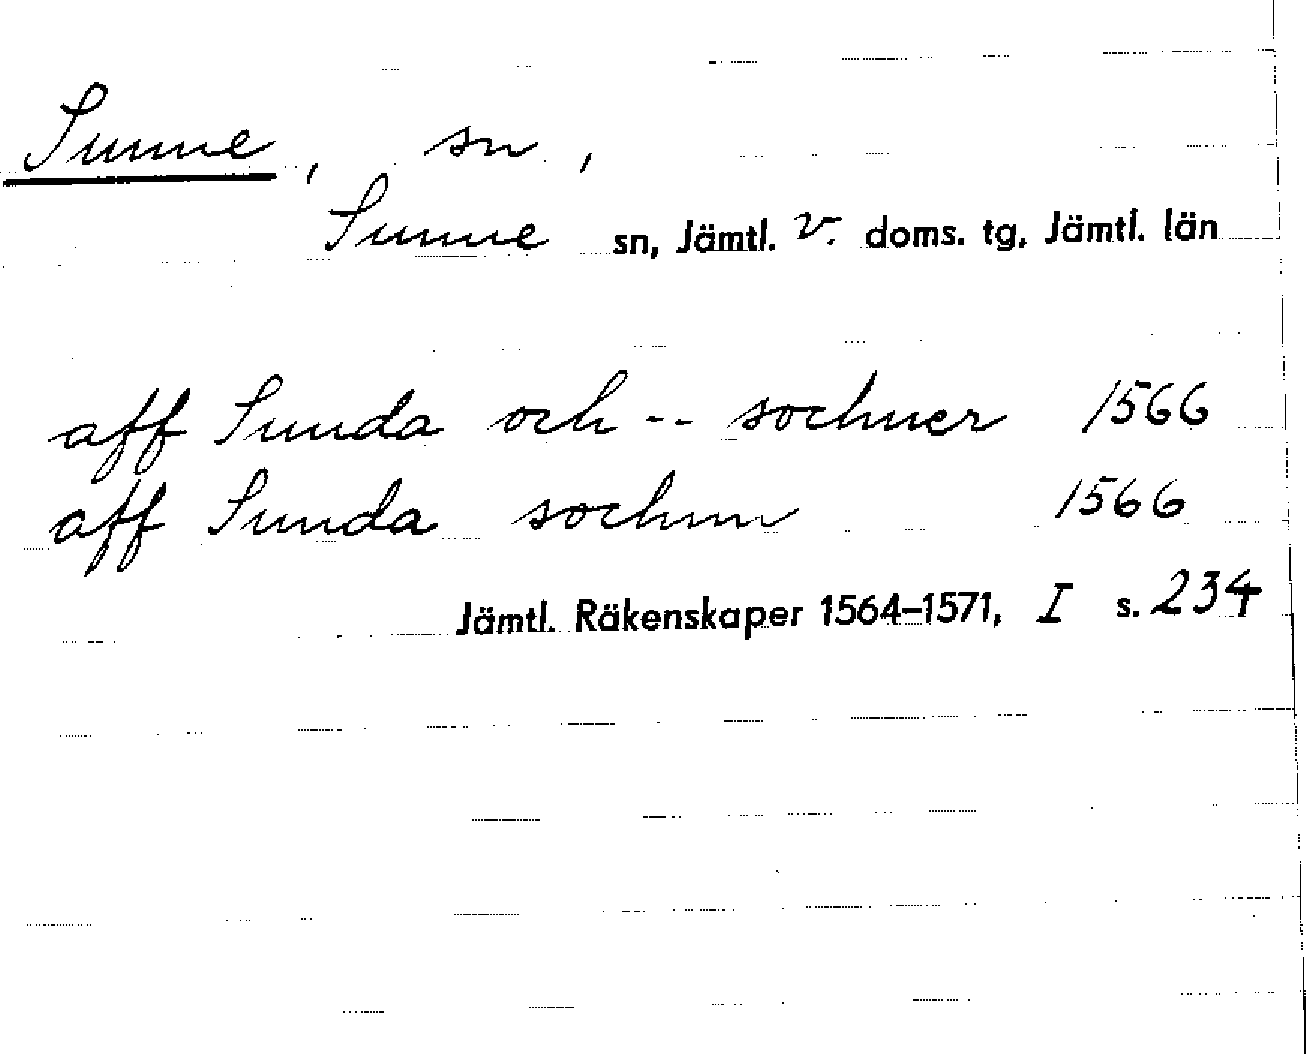 Sunne, sn,
Sunne sn, Jämtl. v. doms. tg, Jämtl. län
aff Sunda och -- sochner 1566
aff Sunda sochnn 1566
Jämtl. Räkenskaper 1564–1571, I s. 234